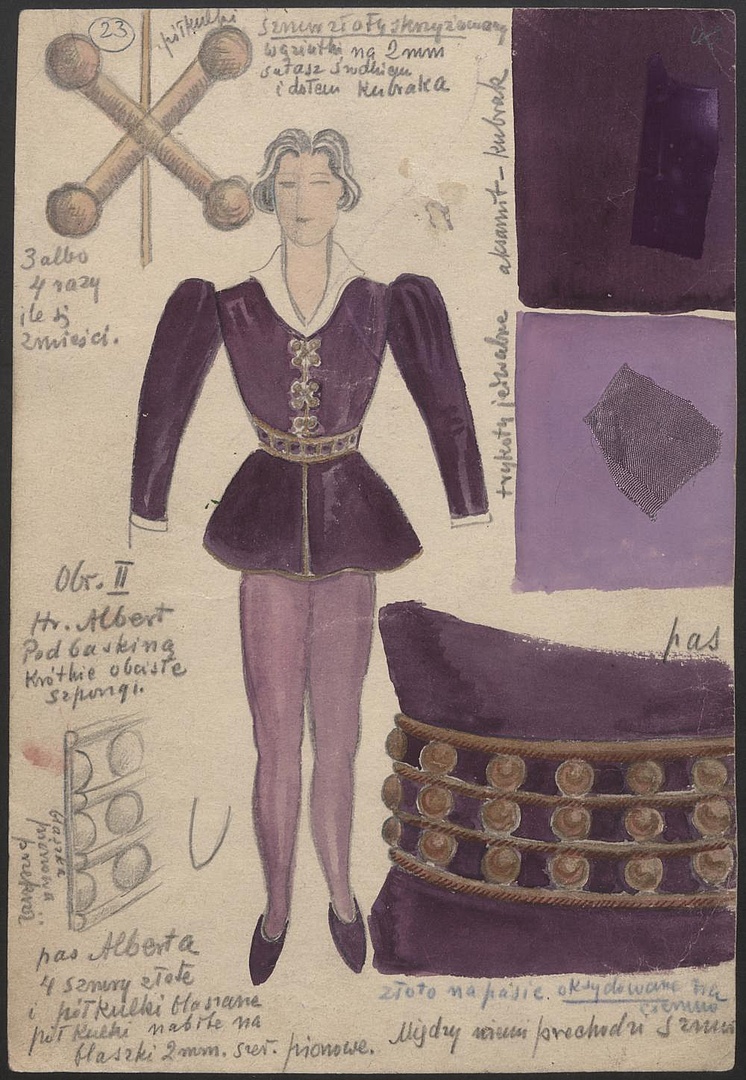 23
półkulki
Sznur złoty skrzyżowany
wązutki na 2mm
sutasz środkiem
i dołem Kubraka
aksamit – kubrak
3 albo
4 razy
ile się
zmieści.
trykoty jedwabne
Obr. II
Hr. Albert
Pod baskiną
Krótkie obcisłe
szpongi.
pas
blaszka
pionowa
pas Alberta
4 sznury złote
i półkulki blaszane
półkulki nabite na
blaszki 2mm. szer. pionowe.
złoto na pasie oksydowane na
ciemno
Między niemi przechodzi sznur